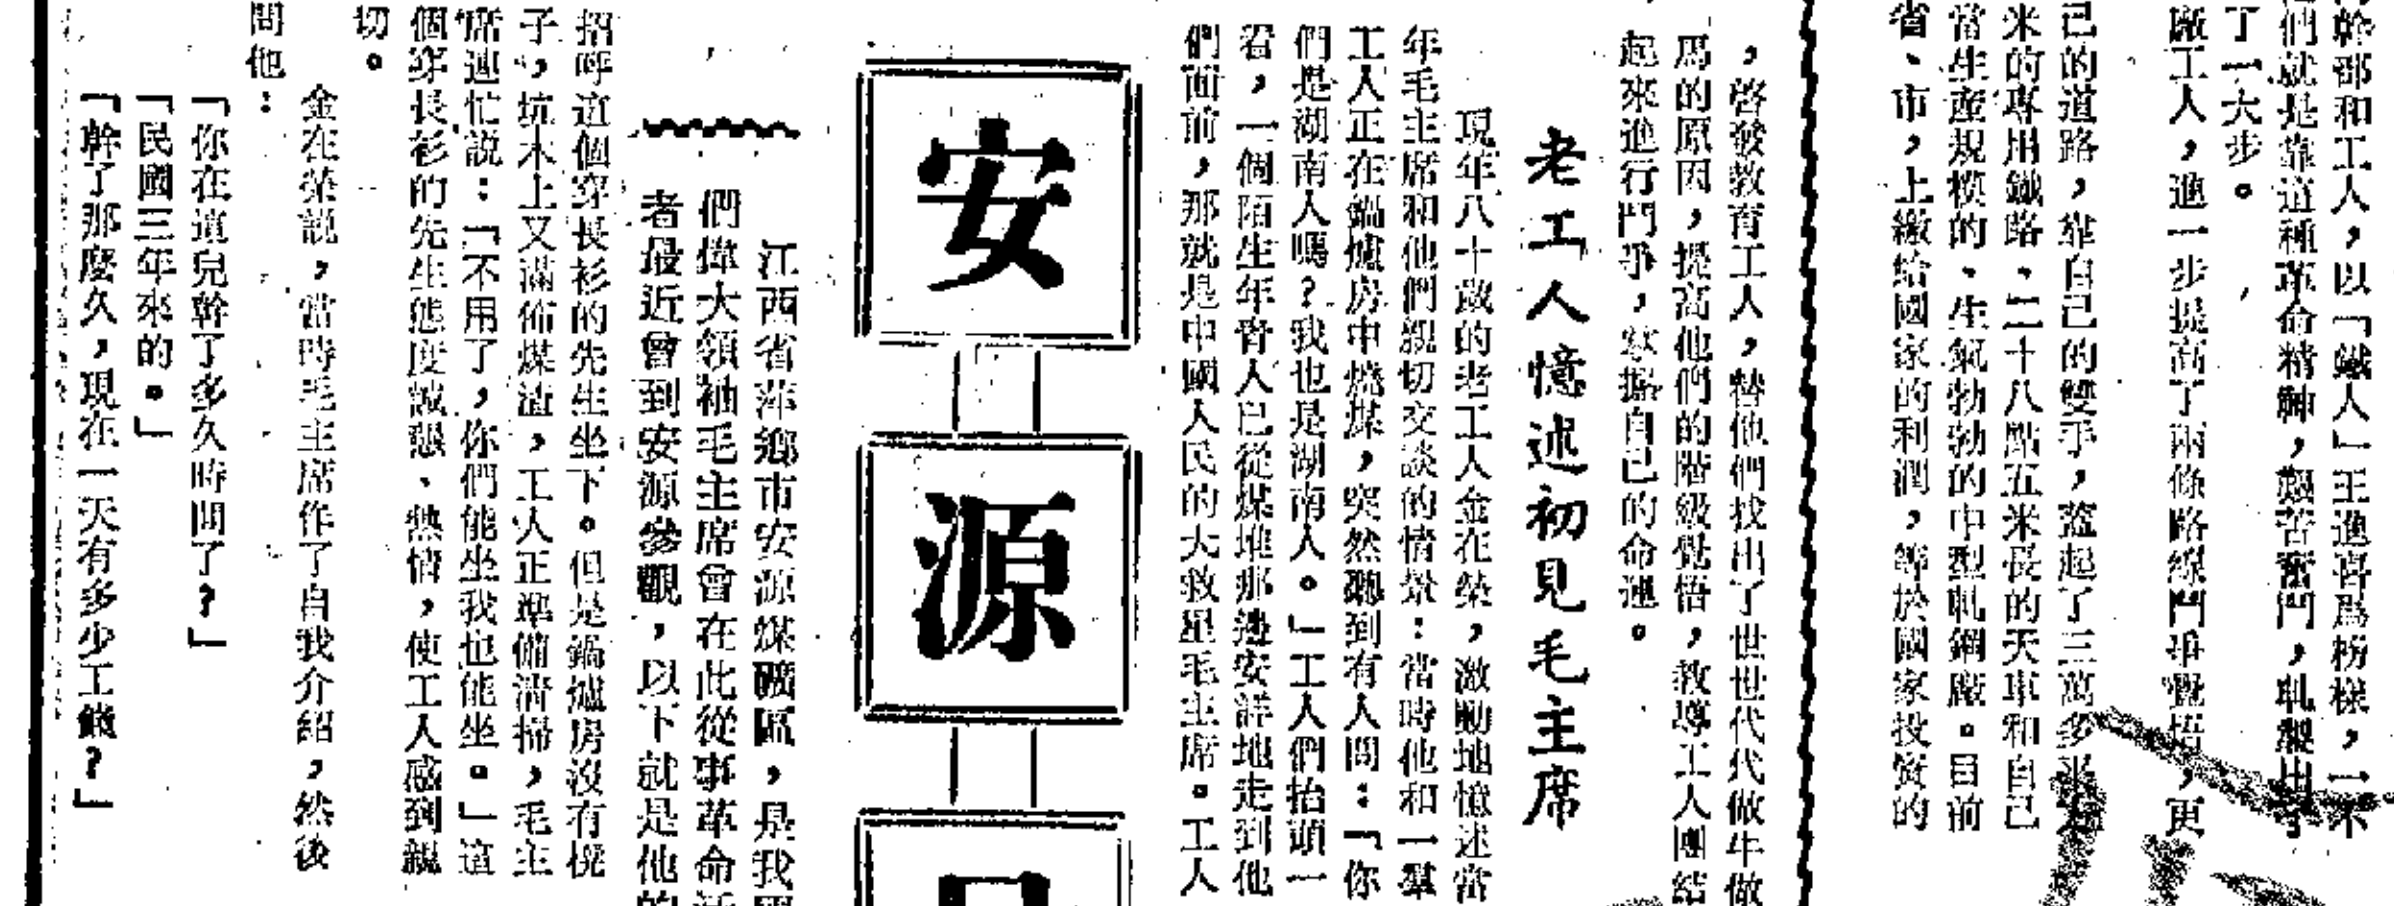 幹部和工人，以「鐵人」王進喜爲榜樣，一不
們就是靠這種革命精神，艱苦奮鬥，軋製出
了一大步。
廠工人，進一步提高了兩條路線鬥爭覺悟，更
己的道路，靠自己的雙手，蓋起了三萬多米
米的專用鐵路、二十八點五米長的天車和自己
當生産規模的、生氣勃勃的中型軋鋼廠。目前
省、市，上繳給國家的利潤，等於國家投資的
，啓發教育工人，替他們找出了世世代代做牛做
馬的原因，提高他們的階級覺悟，教導工人團結
起來進行鬥爭，掌握自己的命運。
老工人憶述初見毛主席
現年八十歲的老工人金在榮，激動地憶述當
年毛主席和他們親切交談的情景：當時他和一羣
工人正在鍋爐房中燒煤，突然聽到有人問：「你
們是湖南人嗎？我也是湖南人。」工人們抬頭一
看，一個陌生年青人已從煤堆那邊安詳地走到他
們面前，那就是中國人民的大救星毛主席。工人
安源
江西省萍鄉市安源煤礦區，是我
們偉大領袖毛主席曾在此從事革命活
者最近曾到安源參觀，以下就是他的
招呼這個穿長衫的先生坐下。但是鍋爐房沒有櫈
子，坑木上又滿佈煤渣，工人正準備清掃，毛主
席連忙説：「不用了，你們能坐我也能坐。」這
個穿長衫的先生態度誠懇、熱情，使工人感到親
切。
金在榮説，當時毛主席作了自我介紹，然後
問他：
「你在這兒幹了多久時間了？」
「民國三年來的。」
「幹了那麼久，現在一天有多少工錢？」